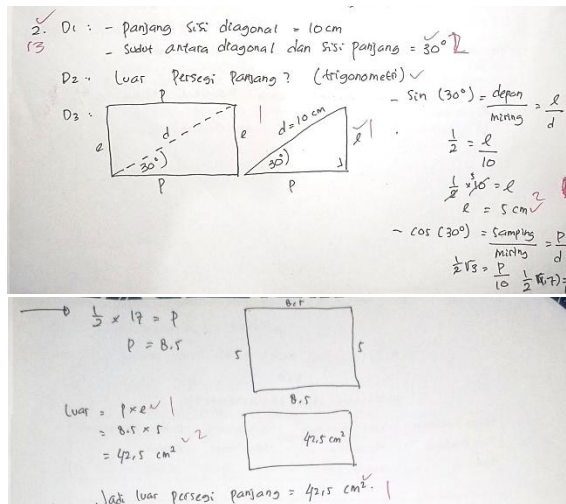 2. D1 : - Panjang sisi diagonal = 10 cm
13
- Sudut antara diagonal dan sisi panjang = 30° 2
D2 : Luas Persegi Panjang? (trigonometri)
D3 :
P
l
d
30°
l
P
1
d = 10 cm
30°
l
1
P
- Sin (30°) = depan / miring = l / d
1/2 = l / 10
1/2 × 10 = l
5
l = 5 cm
2
- cos (30°) = samping / miring = P / d
1/2 √3 = P / 10
1/2 × 17 = P
P = 8.5
8.5
5
5
8.5
Luas = P × l 1
= 8.5 × 5
= 42,5 cm² 2
42,5 cm²
Jadi luas persegi panjang = 42,5 cm². 1